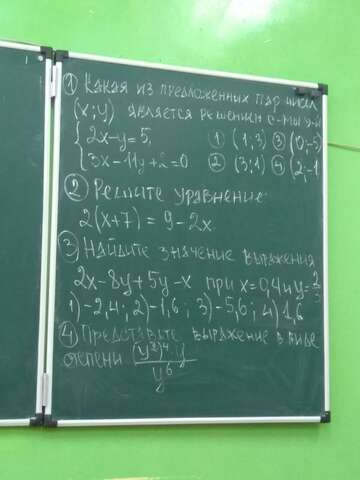 ① Какая из предложенных пар чисел
(x;y) является решением с-мы ур-й
{ 2x-y=5, ① (1;3) ③ (0;-5)
3x-11y+2=0 ② (3;1) ④ (2;-1
② Решите уравнение:
2(x+7) = 9-2x
③ Найдите значение выражения
2x-8y+5y-x при x=0,4 и y=2/3
1)-2,4; 2)-1,6; 3)-5,6; 4)1,6
④ Представьте выражение в виде
степени (y²)⁴·y/y⁶